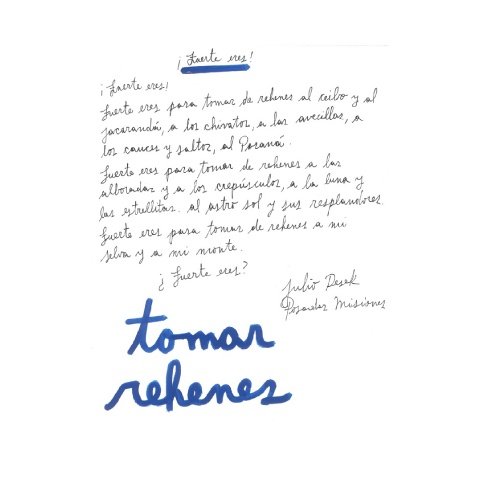 ¡Fuerte eres!
¡Fuerte eres!
Fuerte eres para tomar de rehenes al ceibo y al
jacarandá, a los chivatos, a las avecillas, a
los cauces y saltos, al Paraná.
Fuerte eres para tomar de rehenes a las
alboradas y a los crepúsculos, a la luna y
las estrellitas. al astro sol y sus resplandores
Fuerte eres para tomar de rehenes a mi
selva y a mi monte.
¿Fuerte eres?
Julio Desek
Posadas Misiones
tomar
rehenes